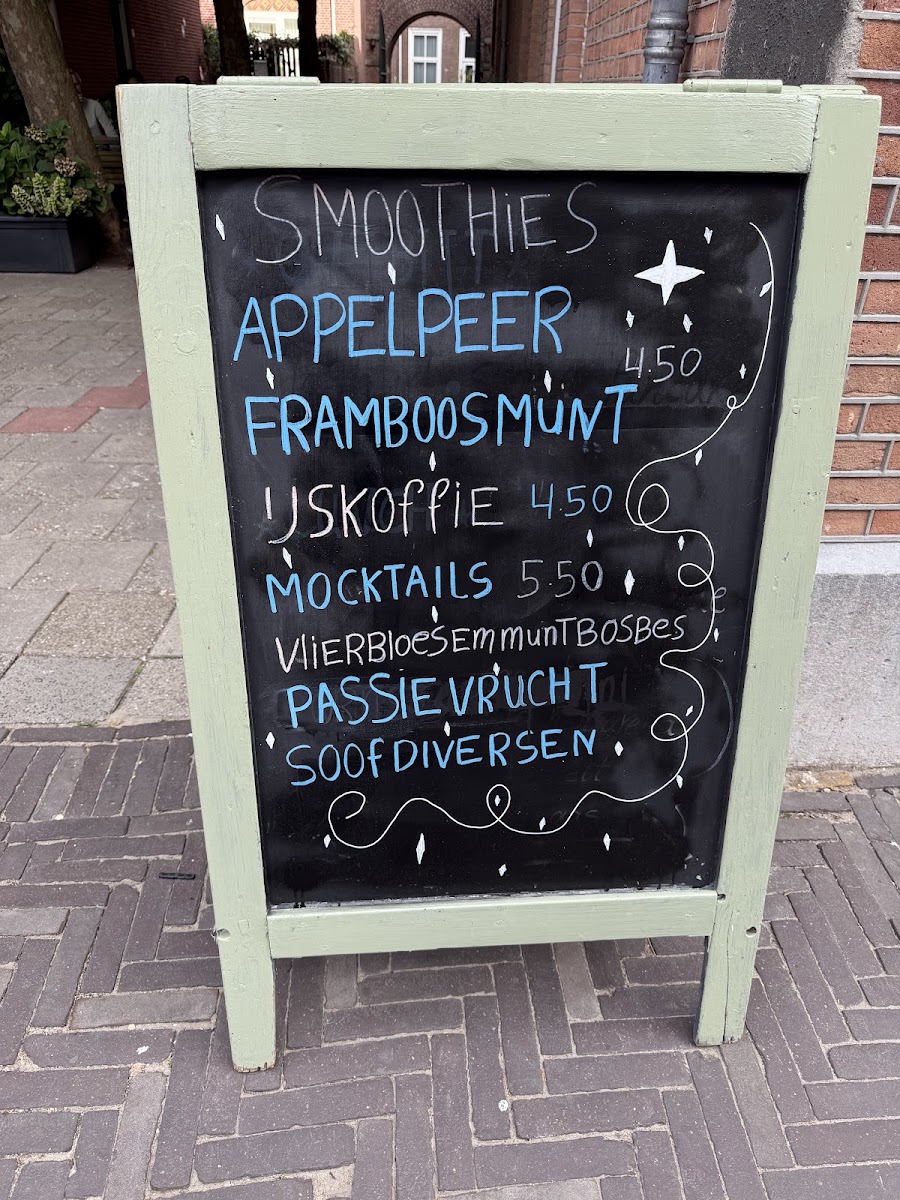 SMOOTHiES
APPELPEER
4.50
FRAMBOOSMUNT
IJSKOffiE 4.50
MOCKTAILS 5.50
VliERBloeSEmmunTBOSBes
PASSIEVRUCHT
SOOfDIVERSEN